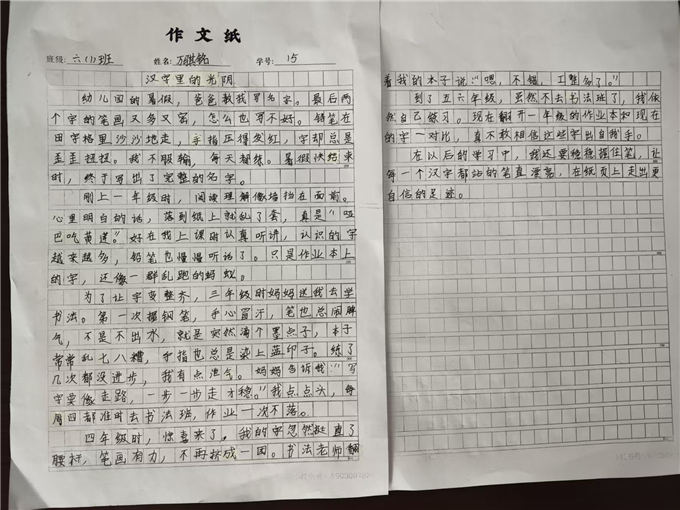 作文纸
班级：六(1)班 姓名：万骐铭 学号：15
汉字里的光阴
幼儿园的暑假，爸爸教我写名字。最后两
个字的笔画又多又密，怎么也写不好。铅笔在
田字格里沙沙地走，手指压得发红，字却总是
歪歪扭扭。我不服输，每天都练。暑假快结束
时，终于写出了完整的名字。
刚上一年级时，阅读理解像墙挡在面前。
心里明白的话，落到纸上就乱了套，真是“哑
巴吃黄连”。好在我上课时认真听讲，认识的字
越来越多，铅笔也慢慢听话了。只是作业本上
的字，还像一群乱跑的蚂蚁。
为了让字变整齐，三年级时妈妈送我去学
书法。第一次握钢笔，手心冒汗，笔也总闹脾
气，不是不出水，就是突然滴个墨点子，本子
常常乱七八糟，手指也总是染上蓝印子。练了
几次都没进步，我有点泄气。妈妈告诉我“写
字要像走路，一步一步走才稳。”我点点头，每
周四都准时去书法班，作业一次不落。
四年级时，惊喜来了。我的字忽然挺直了
腰杆，笔画有力，不再挤成一团。书法老师翻
着我的本子说：“嗯，不错，工整多了。”
到了五六年级，虽然不去书法班了，我依
然自己练习。现在翻开一年级的作业本和现在
的字一对比，真不敢相信这些字出自我手。
在以后的学习中，我还要稳稳握住笔，让
每一个汉字都站的笔直漂亮，在纸页上走出更
自信的足迹。